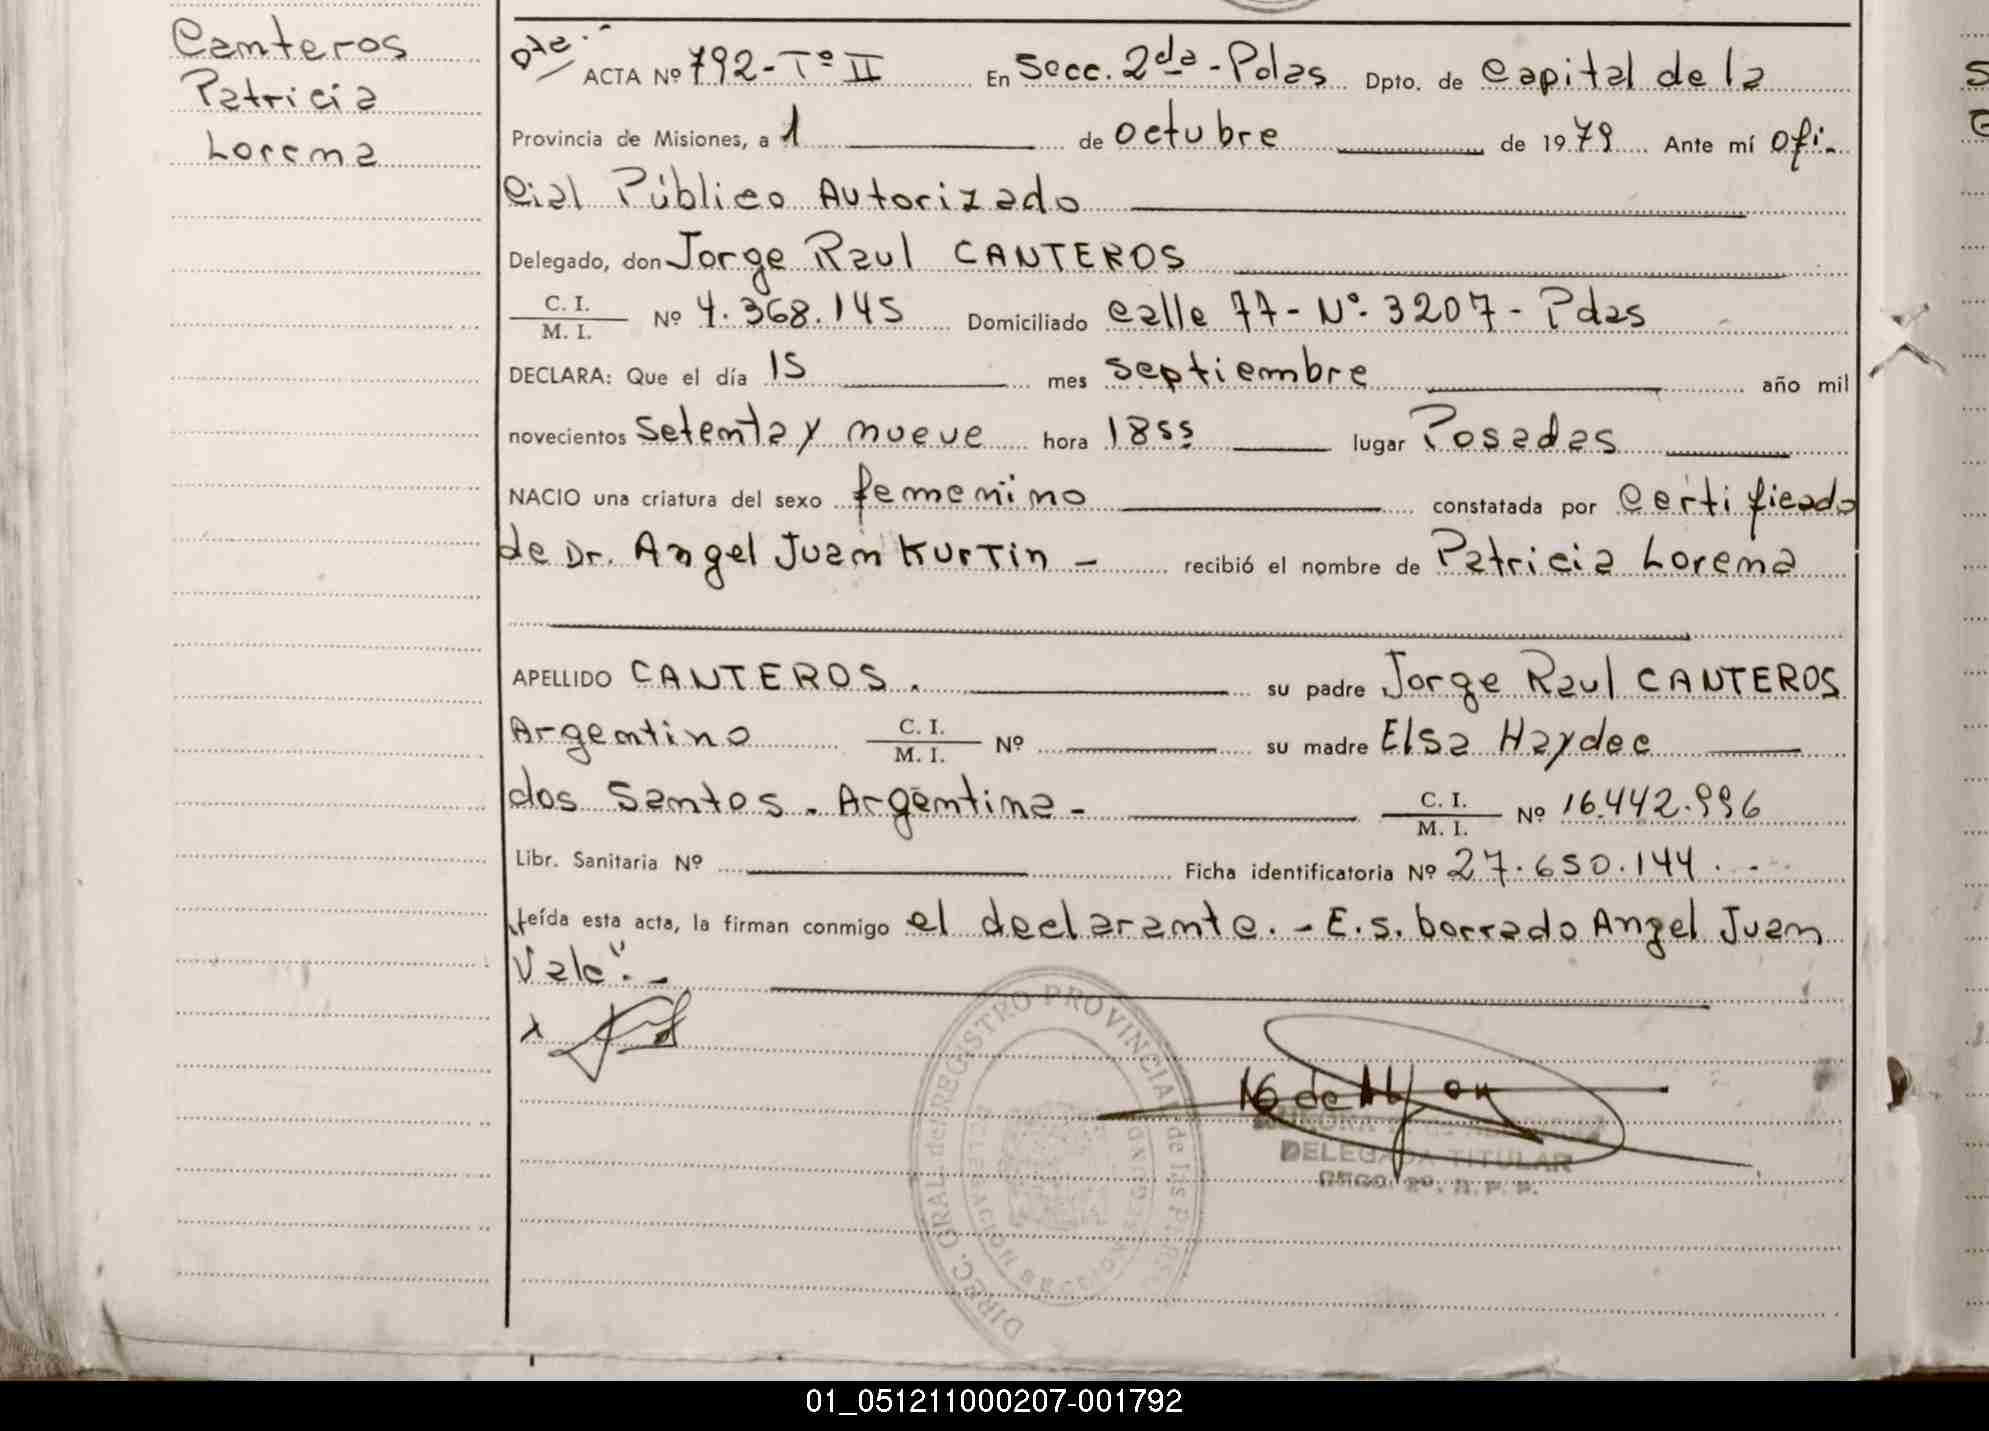 Canteros
Patricia
Lorena
ACTA Nº 792 - Tº II En Secc. 2da - Pdas Dpto. de Capital de la
Provincia de Misiones, a 1 de octubre de 1979 Ante mí ofi-
cial Público Autorizado
Delegado, don Jorge Raul CANTEROS
C. I.
M. I. Nº 4.368.145 Domiciliado calle 77 - Nº 3207 - Pdas
DECLARA: Que el día 15 mes septiembre año mil
novecientos setenta y nueve hora 1855 lugar Posadas
NACIO una criatura del sexo femenino constatada por certificado
de Dr. Angel Juan Kurtin - recibió el nombre de Patricia Lorena
APELLIDO CANTEROS. su padre Jorge Raul CANTEROS
Argentino C. I.
M. I. Nº su madre Elsa Haydee
dos Santos - Argentina - C. I.
M. I. Nº 16.442.996
Libr. Sanitaria Nº Ficha identificatoria Nº 27.650.144. -
Leída esta acta, la firman conmigo el declarante. - E.s. borrado Angel Juan
Vale". -
DIREC. GRAL. del REGISTRO PROVINCIAL de las
DELEGADA TITULAR
01_051211000207-001792